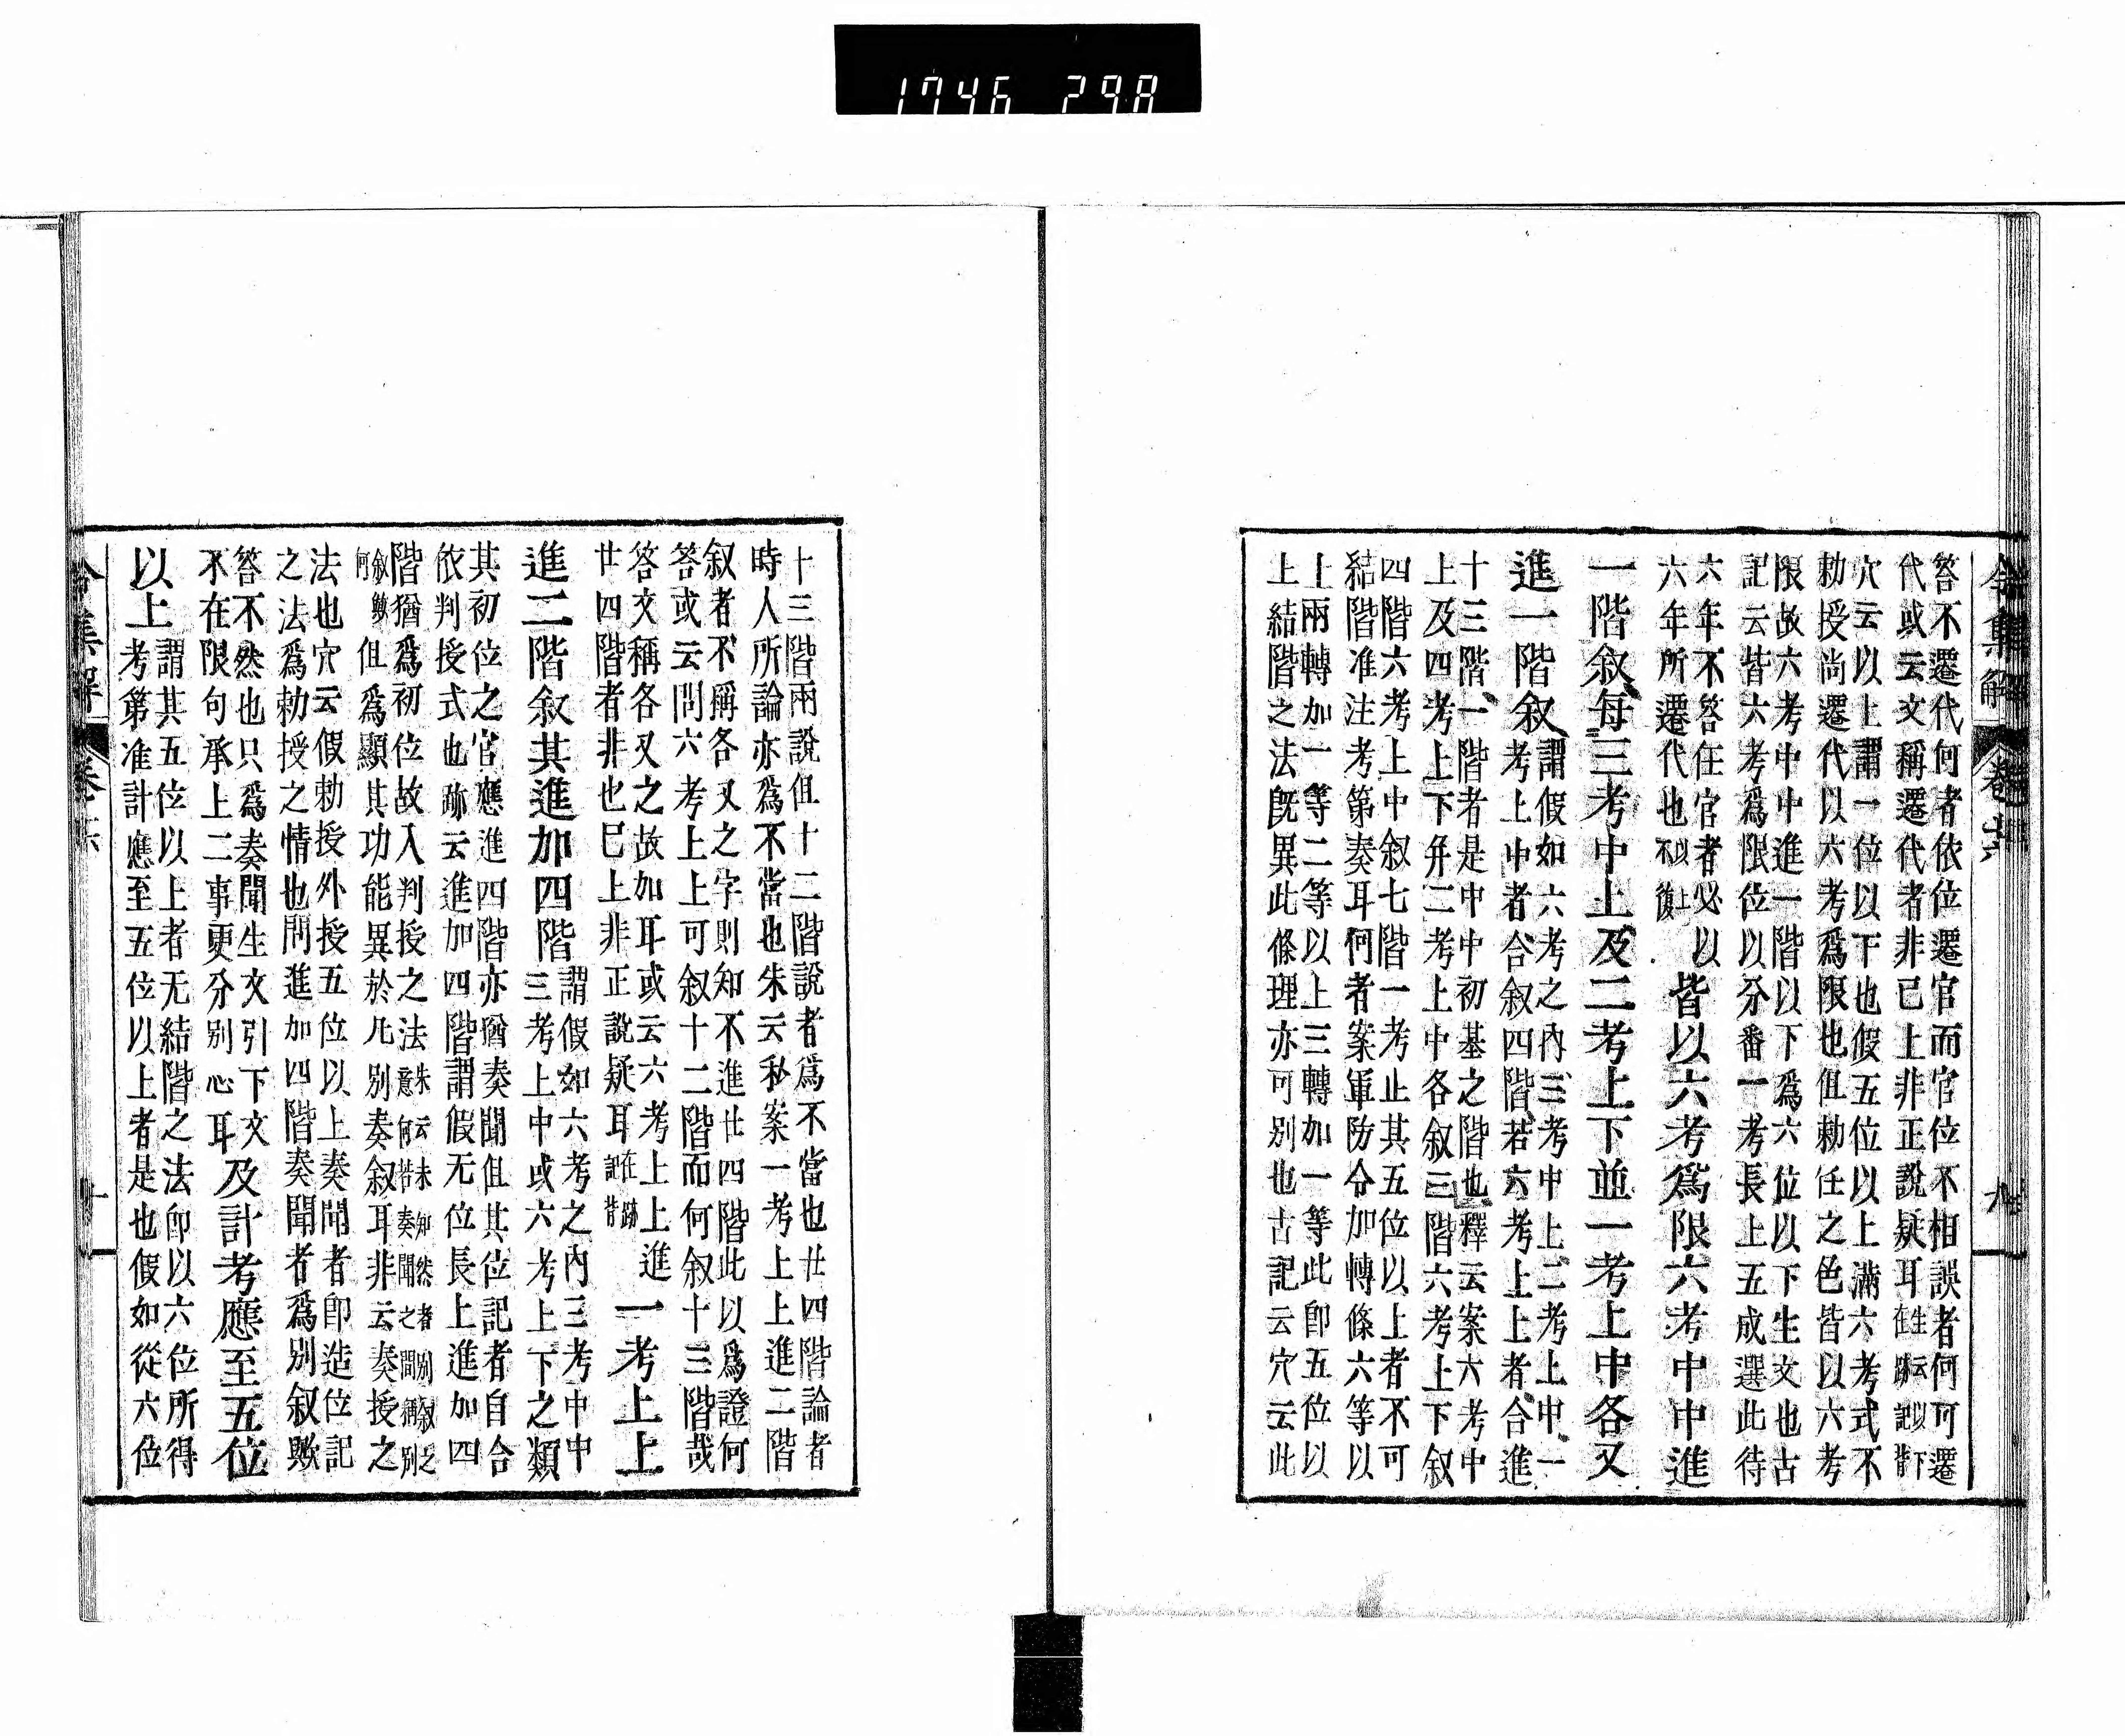 1746 298
令集解 卷六 九
答不遷代何者依位遷官而官位不相誤者何可遷
代或云文稱遷代者非已上非正說疑耳生云以下在跡記背
穴云以上謂一位以下也假五位以上滿六考式不
勅授尚遷代以六考爲限也但勅任之色皆以六考
限故六考中中進一階以下爲六位以下生文也古
記云皆六考爲限位以分番一考長上五成選此待
六年不答任官者必以
六年所遷代也以上不復
皆以六考爲限六考中中進
一階叙每三考中上及二考上下並一考上中各又
進一階叙
謂假如六考之內三考中上二考上中一
考上中者合叙四階若六考上上者合進
十三階一階者是中中初基之階也釋云案六考中
上及四考上下并二考上中各叙三階六考上下叙
四階六考上中叙七階一考止其五位以上者不可
結階准注考第奏耳何者案軍防令加轉條六等以
上兩轉加一等二等以上三轉加一等此卽五位以
上結階之法旣異此條理亦可別也古記云穴云此
十三階兩說但十二階說者爲不當也廿四階論者
時人所論亦爲不當也朱云私案一考上上進二階
叙者不稱各又之字則知不進廿四階此以爲證何
答或云問六考上上可叙十二階而何叙十三階哉
答文稱各又之故加耳或云六考上上進
廿四階者非也已上非正說疑耳在跡記背
一考上上
進二階叙其進加四階
謂假如六考之內三考中中
三考上中或六考上下之類
其初位之官應進四階亦猶奏聞但其位記者自合
依判授式也跡云進加四階謂假无位長上進加四
階猶爲初位故入判授之法朱云未知然者別叙之意何答奏聞之間稱別
叙歟何但爲顯其功能異於凡別奏叙耳非云奏授之
法也穴云假勅授外授五位以上奏聞者卽造位記
之法爲勅授之情也問進加四階奏聞者爲別叙歟
答不然也只爲奏聞生文引下文
不在限句承上二事更分別心耳
及計考應至五位
以上
謂其五位以上者无結階之法卽以六位所得
考第准計應至五位以上者是也假如從六位
令集解 卷六 十